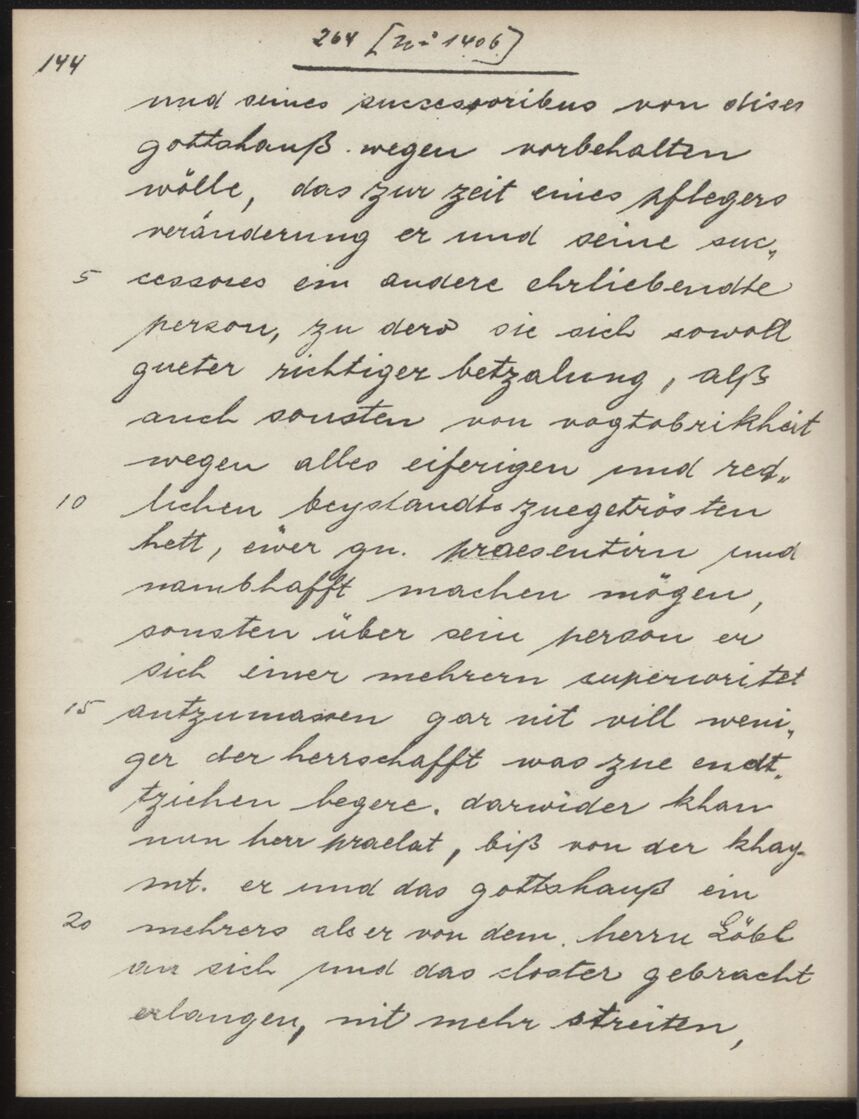 264 [No 1406]
144
und seines successoribus von dises
gottshauß wegen vorbehalten
wölle, das zur zeit eines pflegers
veränderung er und seine suc„
5 cessores ein andere ehrliebendte
person, zu dero sie sich sowoll
gueter richtiger betzalung, alß
auch sonsten von vogtobrikheit
wegen alles eiferigen und red„
10 lichen beystandts zuegetrösten
hett, ewer gn. praesentirn und
nambhafft machen mögen,
sonsten über sein person er
sich einer mehrern superioritet
15 antzumassen gar nit vill weni„
ger der herrschafft was zue endt„
tziehen begere. darwider khan
nun herr praelat, biß von der khay-
mt. er und das gottshauß ein
20 mehrers als er von dem herrn Löbl
an sich und das closter gebracht
erlangen, nit mehr streiten,